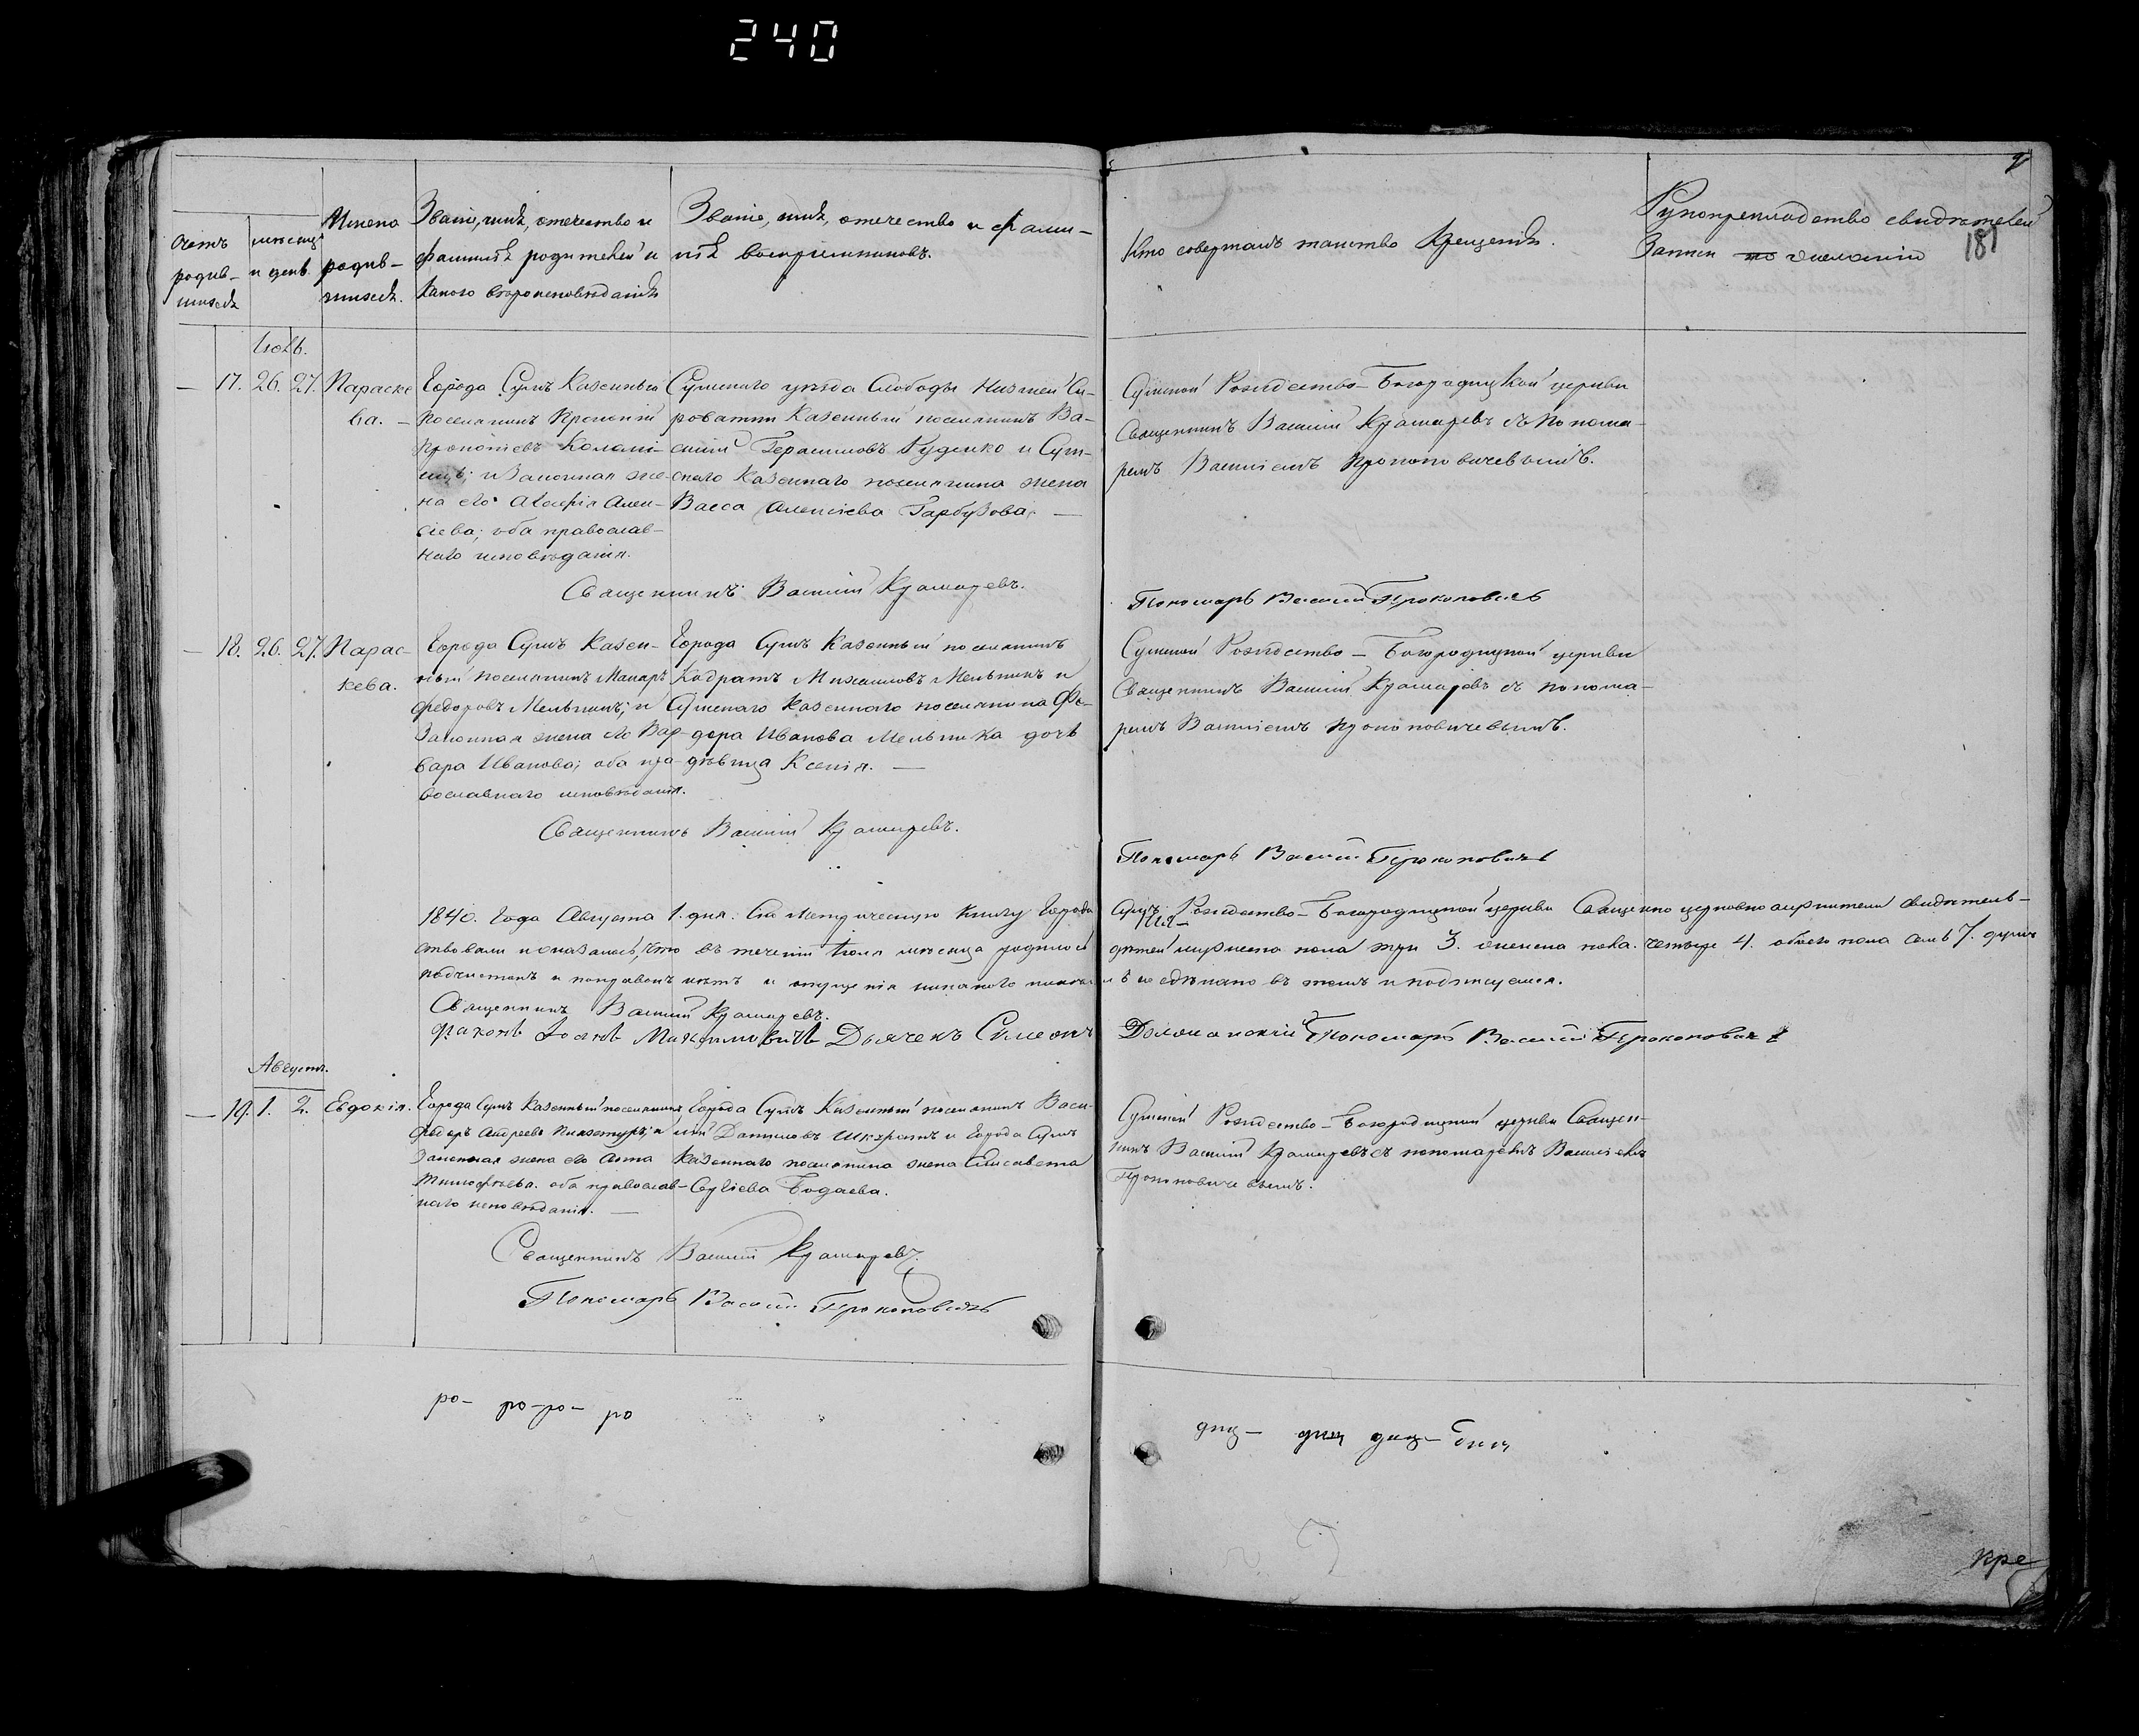 240
Счетъ
родив-
шихся
месяцъ
и день.
Имена
родив-
шихся.
Званіе, имя, отечество и
фамилія родителей и
какого вѣроисповѣданія
Званіе, имя, отечество и фами-
лія воспріемниковъ.
Кто совершалъ таинство Крещенія.
Рукоприкладство свидѣтелей
Записи по желанію
181
Іюль.
17. 26. 27.
Параске
ва.
Города Сумъ Казенный
поселянинъ Прокопій
Прокопіевъ
и Законная же-
на его Алек-
сіева; оба православ-
наго исповѣданія.
Сумскаго уѣзда Слободы Нижней Сы-
роватки Казенный поселянинъ Ва-
силій Герасимовъ Руденко и Сум-
скаго Казеннаго поселянина жена
Васса Алексіева Гарбузова. —
Сумской Рождество-Богородицкой церкви
Священникъ Василій Крамаревъ съ Понома-
ремъ Василіемъ Прокоповичевымъ.
Священникъ Василій Крамаревъ.
Пономарь Василій Прокоповичъ
18. 26. 27.
Парас-
кева.
Города Сумъ Казен-
ный поселянинъ Макаръ
Федоровъ Мельникъ; и
Законная жена его Вар-
вара Иванова; оба пра-
вославнаго исповѣданія.
Города Сумъ Казенный поселянинъ
Кодратъ Михаиловъ Мельникъ и
Сумскаго Казеннаго поселянина Фе-
дора Иванова Мельника дочь
дѣвица Ксенія. —
Сумской Рождество-Богородицкой церкви
Священникъ Василій Крамаревъ съ понома-
ремъ Василіемъ Прокоповичевымъ.
Священникъ Василій Крамаревъ.
Пономарь Василій Прокоповичъ
1840. Года Августа 1. дня. Сію Метрическую Книгу Города Сумъ Рождество-Богородицкой церкви Священно церковно служители свидѣтель-
ствовали и оказалось, что въ теченіи Іюля мѣсяца родилось дѣтей мужеска пола три 3. женска пола четыре 4. обоего пола семь 7. душъ
подчистокъ и поправокъ нѣтъ и опущенія никакого не сдѣлано въ томъ и подписуемся.
Священникъ Василій Крамаревъ.
Діаконъ Іоаннъ Максимовичъ Дьячекъ Симеонъ Пономарь Василій Прокоповичъ
Августъ.
19. 1. 2.
Евдокія.
Города Сумъ Казенный поселянинъ
Федоръ Андреевъ и
Законная жена его Анна
Тимофѣева. оба православ-
наго исповѣданія. —
Города Сумъ Казенный поселянинъ Васи-
лій Даниловъ и Города Сумъ
Казеннаго поселянина жена Елисавета
Бодаева.
Сумской Рождество-Богородицкой церкви Священ-
никъ Василій Крамаревъ съ пономаремъ Василіемъ
Прокоповичевымъ.
Священникъ Василій Крамаревъ.
Пономарь Василій Прокоповичъ
ро- ро-ро- ро
диц- диц диц-
кре